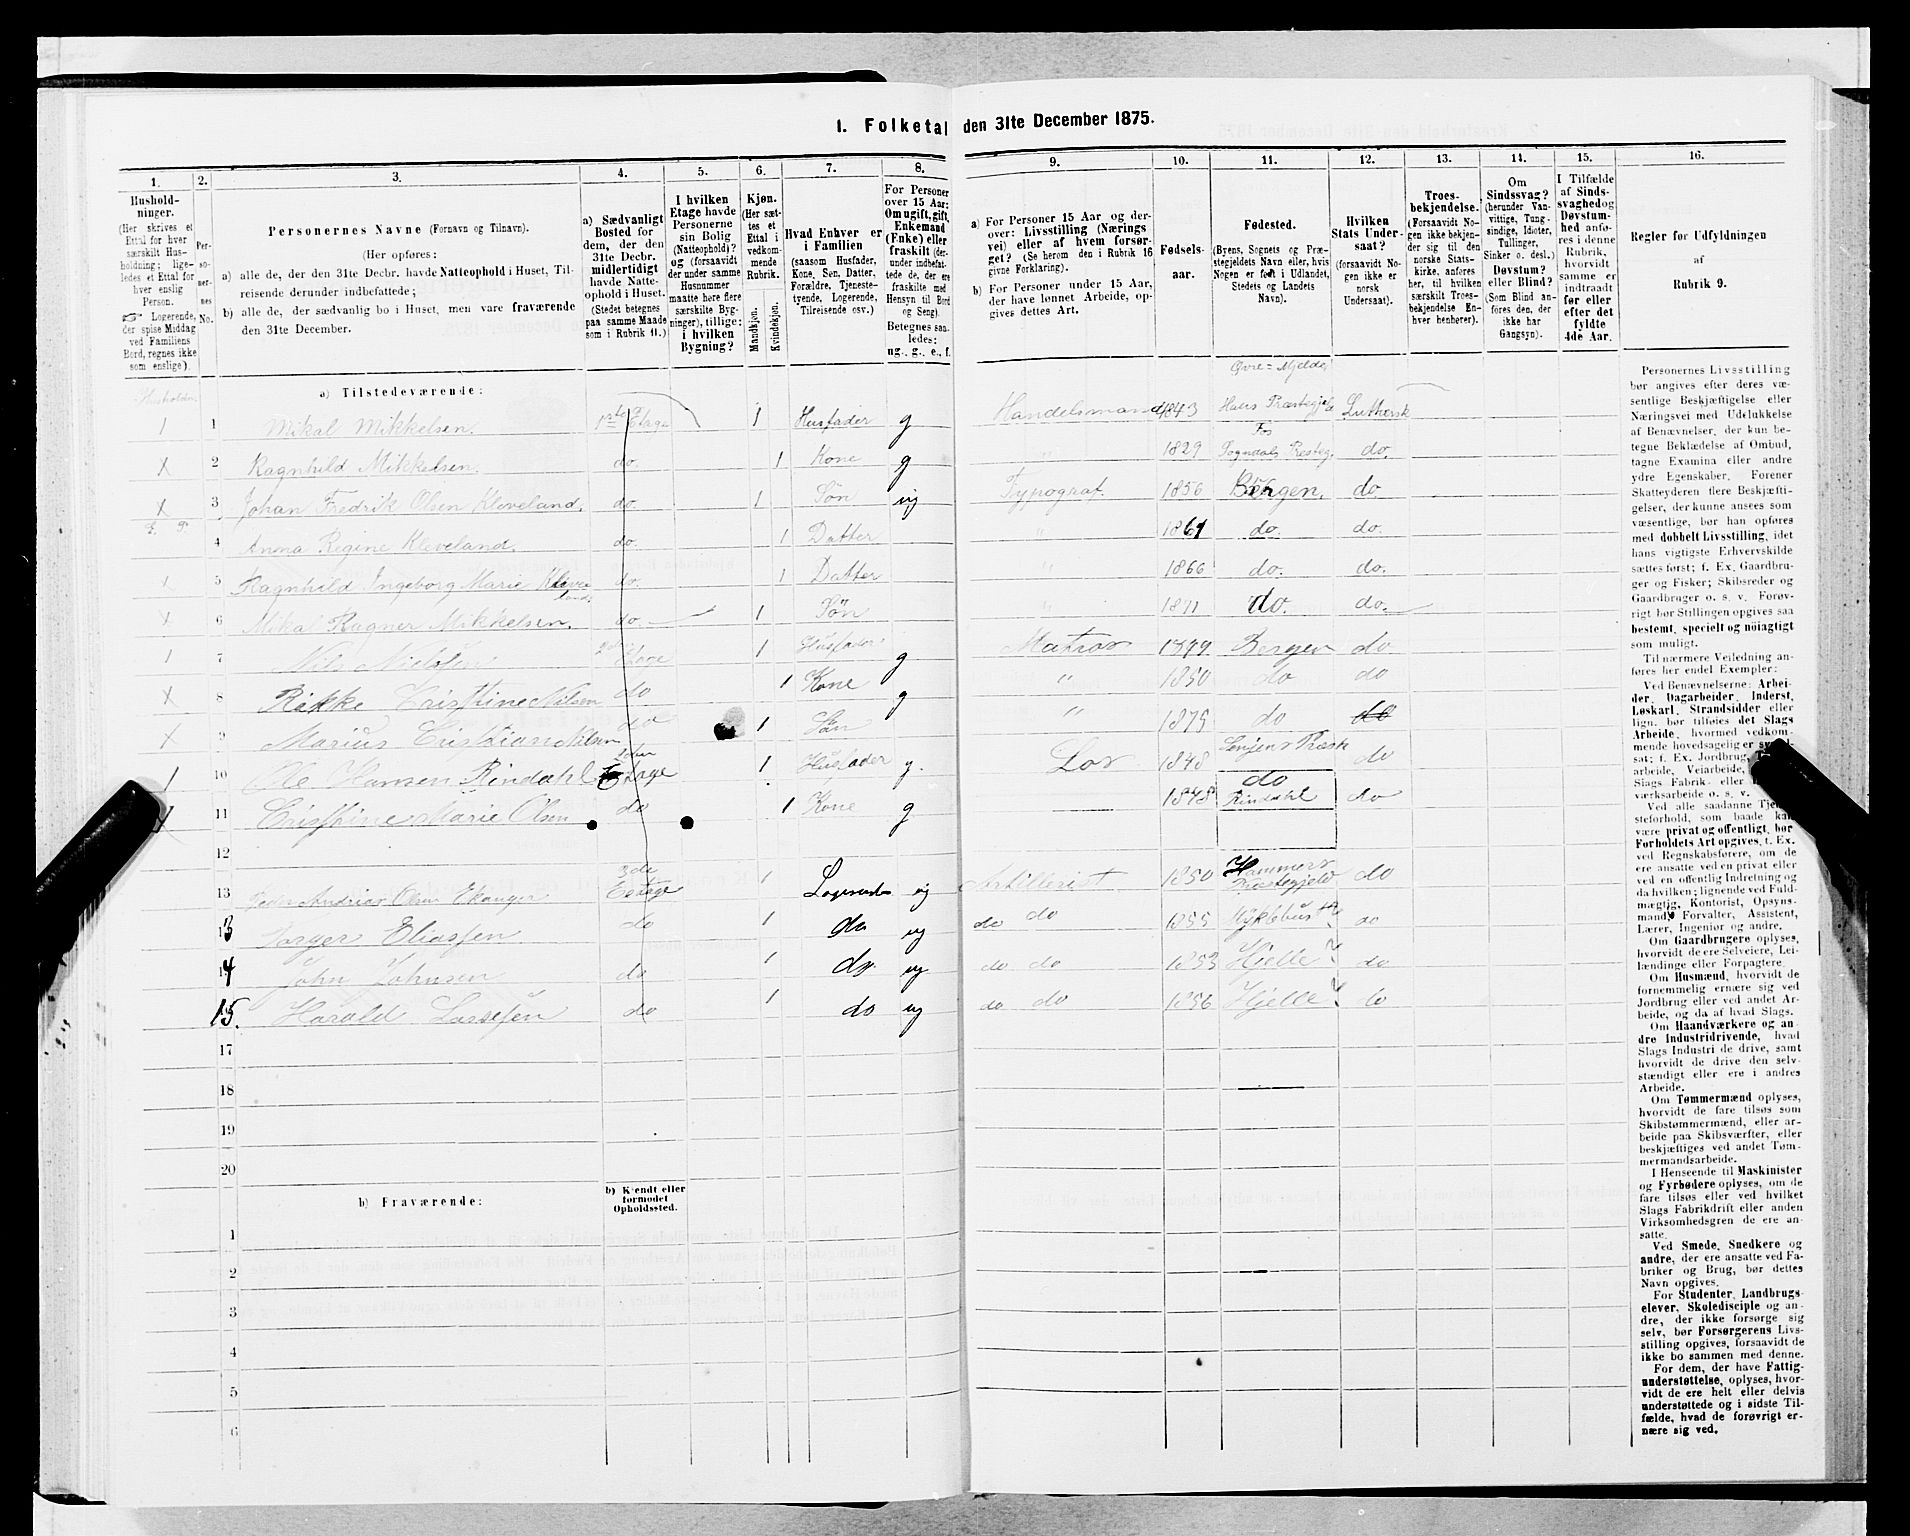 1. Folketal den 31te December 1875.
1.
Hushold-
ninger.
(Her skrives et
Ettal for hver
særskilt Hus-
holdning; lige-
ledes et Ettal for
hver enslig
Person.
☞ Logerende,
der spise Middag
ved Familiens
Bord, regnes ikke
som enslige).
2.
Per-
so-
ner-
nes
No.
3.
Personernes Navne (Fornavn og Tilnavn).
(Her opføres:
a) alle de, der den 31te Decbr. havde Natteophold i Huset, Til-
reisende derunder indbefattede;
b) alle de, der sædvanlig bo i Huset, men vare fraværende
den 31te December.
4.
a) Sædvanligt
Bosted for
dem, der den
31te Decbr.
midlertidigt
havde Natte-
ophold i Huset.
(Stedet betegnes
paa samme Maade
som i Rubrik 11.)
5.
I hvilken
Etage havde
Personerne
sin Bolig
(Natteophold)?
og (forsaavidt
der under samme
Husnummer
maatte høre flere
særskilte Byg-
ninger), tillige:
i hvilken
Bygning?
6.
Kjøn.
(Her sæt-
tes et
Ettal i
vedkom-
mende
Rubrik.
Mandkjøn.
Kvindekjøn.
7.
Hvad Enhver er
i Familien
(saasom Husfader,
Kone, Søn, Datter,
Forældre, Tjeneste-
tyende, Logerende,
Tilreisende osv.)
8.
For Personer
over 15 Aar:
Om ugift, gift,
Enkemand
(Enke) eller
fraskilt (der-
under indbefat-
tede de, der ere
fraskilte med
Hensyn til Bord
og Seng).
Betegnes saa-
ledes:
ug., g., e., f.
9.
a) For Personer 15 Aar og der-
over: Livsstilling (Nærings
vei) eller af hvem forsør-
get? (Se herom den i Rubrik 16
givne Forklaring).
b) For Personer under 15 Aar,
der have lønnet Arbeide, op-
gives dettes Art.
10.
Fødsels-
aar.
11.
Fødested.
(Byens, Sognets og Præ-
stegjeldets Navn eller, hvis
Nogen er født i Udlandet,
Stedets og Landets
Navn).
12.
Hvilken
Stats Under-
saat?
(forsaavidt No-
gen ikke er
norsk
Undersaat).
13.
Troes-
bekjendelse.
(Forsaavidt No-
gen ikke bekjen-
der sig til den
norske Stats-
kirke, anføres
her, til hvilken
særskilt Troes-
bekjendelse En-
hver henhører).
14.
Om
Sindssvag?
(herunder Van-
vittige, Tung-
sindige, Idioter,
Tullinger,
Sinker o. desl.)
Døvstum?
eller Blind?
(Som Blind an-
føres den, der
ikke har
Gangsyn).
15.
I Tilfælde
af Sinds-
svaghed og
Døvstum-
hed anfø-
res i denne
Rubrik,
hvorvidt
samme er
indtraadt
før eller
efter det
fyldte
4de Aar.
16.
Regler for Udfyldningen
af
Rubrik 9.
a) Tilstedeværende:
Øvre-Mjelde,
1 1 Mikal Mikkelsen. 1ste Etage 1 Husfader g Handelsmand 1843 Haus Præstegjeld Luthersk
2 Ragnhild Mikkelsen. do. 1 Kone g " 1829 Sogndals Presteg. do.
3 Johan Fredrik Olsen Kleveland. do. 1 Søn ug Typograf. 1856 Bergen. do
4 Anna Regine Kleveland. do. 1 Datter " 1861 do. do.
5 Ragnhild Ingeborg Marie Kleve
land. do. 1 Datter " 1866 do. do.
6 Mikal Ragner Mikkelsen. do. 1 Søn " 1871 do. do.
1 7 Nils Nielsen 2den Etage 1 Husfader g Matros 1849 Bergen do
8 Rikke Cristhine Nilsen do 1 Kone g " 1850 do do
9 Marius Cristian Nilsen do 1 Søn " 1875 do do
1 10 Ole Hansen Rindahl 2den Etage 1 Husfader g. Los 1848 Præst do
11 Cristhine Marie Olsen do 1 Kone g 1848 do Rindahl do
12
13 Peder Andrias Olsen Ekanger 3de Etage 1 Logerende ug Artillerist 1850 Hammers Præstegjeld do
13 Eliassen do 1 do ug do do 1855 Myklebust do
14 John Johnsen do 1 do ug do do 1853 Hjelle do
15. Harald Lassesen do 1 do ug do do 1856 Hjelle do
17
18
19
20
b) Fraværende:
b) Kjendt eller
formodet
Opholdssted.
1
2
3
4
5
6
Personernes Livsstilling
bør angives efter deres væ-
sentlige Beskjæftigelse eller
Næringsvei med Udelukkelse
af Benævnelser, der kun be-
tegne Beklædelse af Ombud,
tagne Examina eller andre
ydre Egenskaber. Forener
Skatteyderen flere Beskjæfti-
gelser, der kunne ansees som
væsentlige, bør han opføres
med dobbelt Livsstilling, idet
hans vigtigste Erhvervskilde
sættes først; f. Ex. Gaardbru-
ger og Fisker; Skibsreder og
Gaardbruger o. s. v. Forøv-
rigt bør Stillingen opgives saa
bestemt, specielt og nöiagtigt
som muligt.
Til nærmere Veiledning an-
føres her endel Exempler:
Ved Benævnelserne: Arbei-
der, Dagarbeider, Inderst,
Løskarl, Strandsidder eller
lign. bør tilføies det Slags
Arbeide, hvormed vedkom-
mende hovedsagelig er syssel-
sat; f. Ex. Jordbrug,
arbeide, Veiarbeide,
Slags Fabrik- eller
værksarbeide o. s. v.
Ved alle saadanne Tje-
steforhold, som baade kan
være privat og offentligt, bør
Forholdets Art opgives, f. Ex.
ved Regnskabsførere, om de
ere ansatte ved en privat eller
ved en offentlig Indretning og
da hvilken; lignende ved Fuld-
mægtig, Kontorist, Opsyns-
mand, Forvalter, Assistent,
Lærer, Ingeniør og andre.
Om Gaardbrugere oplyses,
hvorvidt de ere Selveiere, Lei-
lændinge eller Forpagtere.
Om Husmænd, hvorvidt de
fornemmelig ernære sig ved
Jordbrug eller ved andet Ar-
beide, og da af hvad Slags.
Om Haandværkere og an-
dre Industridrivende, hvad
Slags Industri de drive, samt
hvorvidt de drive den selv-
stændigt eller ere i andres
Arbeide.
Om Tømmermænd oplyses,
hvorvidt de fare tilsøs som
Skibstømmermænd, eller ar-
beide paa Skibsværfter, eller
beskjæftiges ved andet Tøm-
mermandsarbeide.
I Henseende til Maskinister
og Fyrbødere oplyses, om de
fare tilsøs eller ved hvilket
Slags Fabrikdrift eller anden
Virksomhedsgren de ere an-
satte.
Ved Smede, Snedkere og
andre, der ere ansatte ved Fa-
briker og Brug, bør dettes
Navn opgives.
For Studenter, Landbrugs-
elever, Skoledisciple og an-
dre, der ikke forsørge sig
selv, bør Forsørgerens Livs-
stilling opgives, forsaavidt de
ikke bo sammen med denne.
For dem, der have Fattig-
understøttelse, oplyses, hvor-
vidt de ere helt eller delvis
understøttede og i sidste Til-
fælde, hvad de forøvrigt er-
nære sig ved.